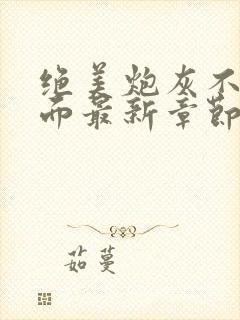 绝美炮灰不
而最新章節
茹蔓